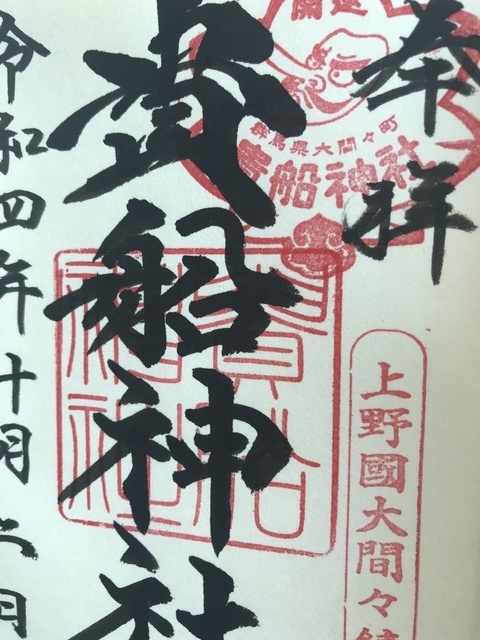 奉拝
開運
群馬県大間々町
貴船神社
上野國大間々
貴船神社
令和四年十月二日